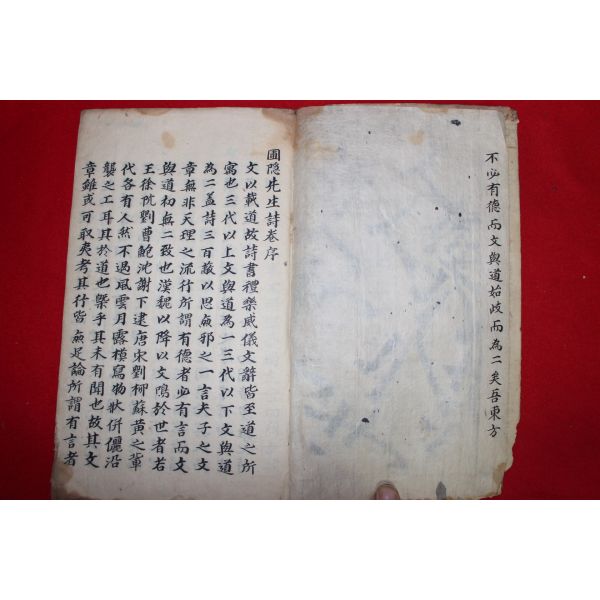 不必有德而文與道始歧而為二矣吾東方
圃隐先生詩卷序
文以載道故詩書禮樂威儀文辭皆至道之所
寓也三代以上文與道為一三代以下文與道
為二盖詩三百蔽以思無邪之一言夫子之文
章無非天理之流行所謂有德者必有言而文
與道初無二致也漢魏以降以文鳴於世者若
王徐阮劉曹鮑沈謝下逮唐宋劉柳蘇黃之輩
代各有人然不過風雲月露模寫物狀併儷沿
襲之工耳其於道也槩乎其未有聞也故其文
章雖或可取夷考其行皆無足論所謂有言者